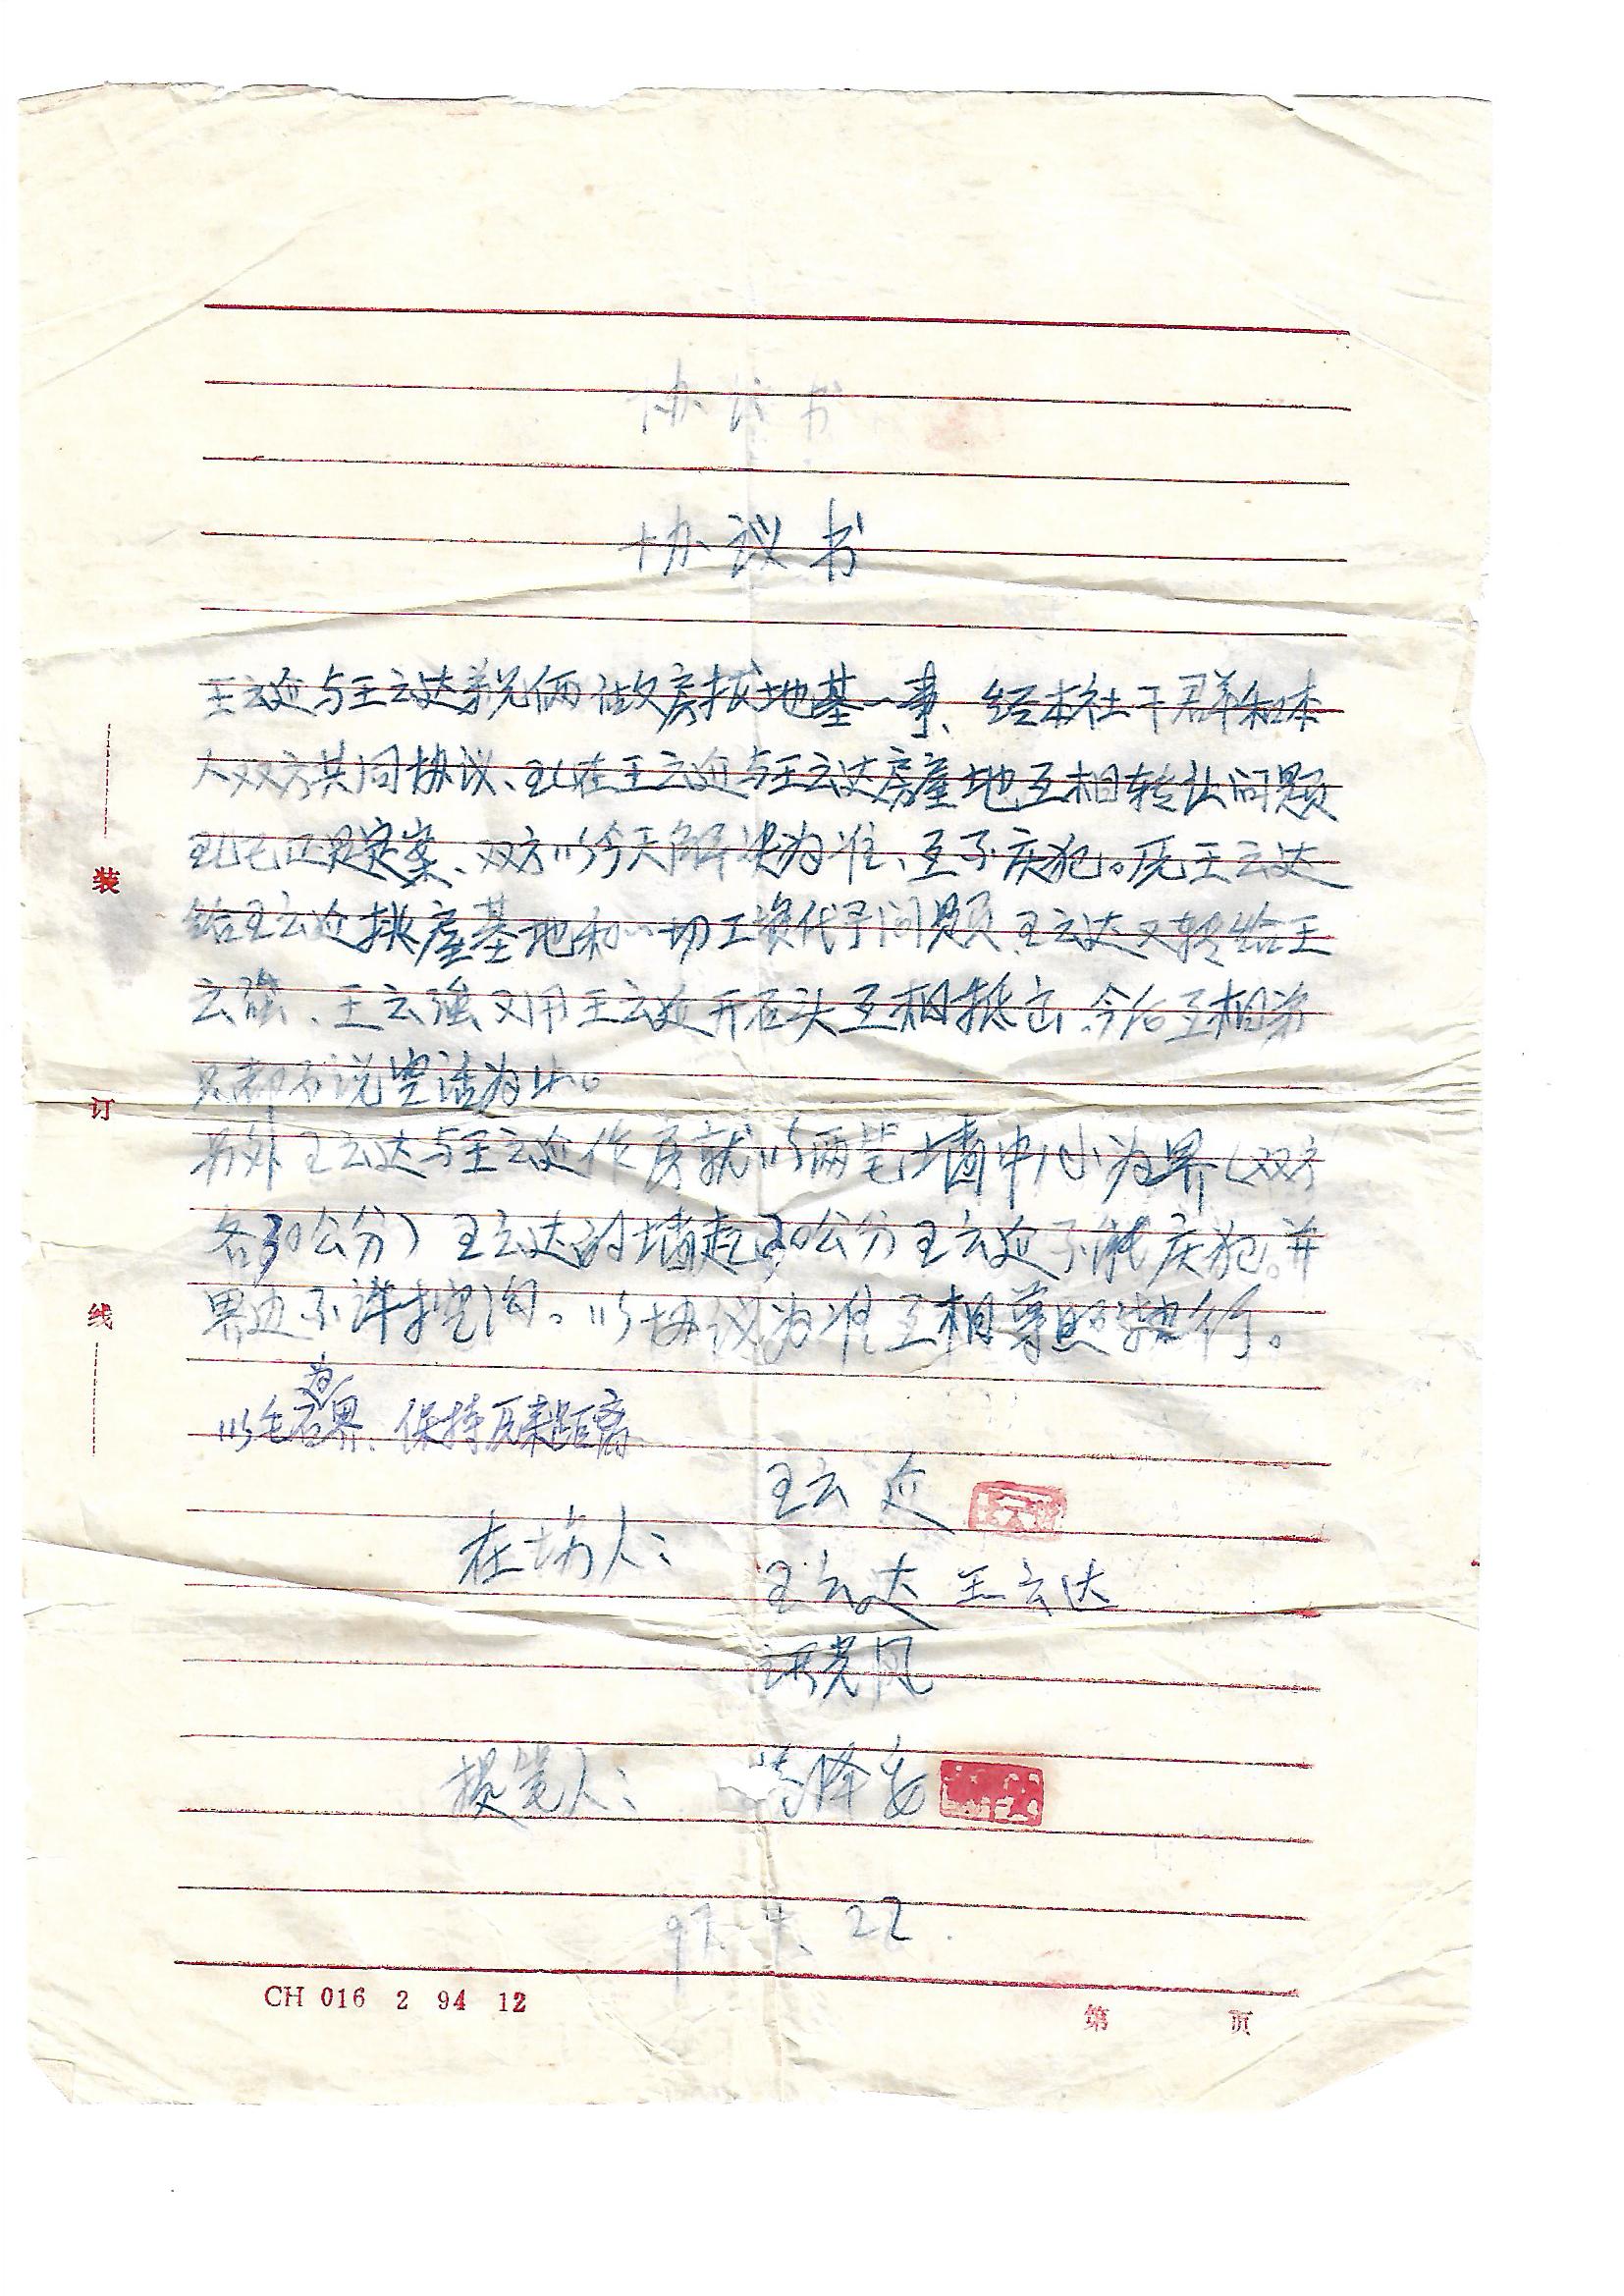 协议书
协议书
王云延与王云达弟兄俩做房找地基一事、经本社干群和本
人双方共同协议、现在王云延与王云达房屋地互相转让问题
现已正是定案、双方以今天解决为准、互不庆犯。原王云达
给王云延挑屋基地和一切工资代予问题、王云达又转给王
云强、王云强又用王云延开石头互相抵
都不说空话为止。
另外王云达与王云延作房就以两笔墙中心为界（双方
各30公分）王云达的墙起30公分王云延不能庆犯。并
界边不许挖沟。以协议为准互相尊照执行。
为
以石界、保持原来距离
王云延
在场人：
王云达 王云达
光凤
人：
97. 22.
装
订
线
CH 016 2 94 12
第 页